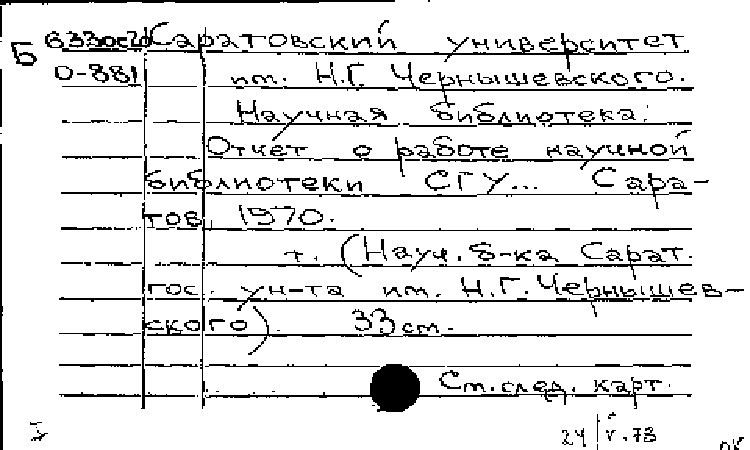 Б 6330с20 Саратовский университет
О-881 им. Н.Г. Чернышевского.
Научная библиотека.
Отчет о работе научной
библиотеки СГУ... Сара-
тов, 1970.
т. (Науч. б-ка Сарат.
гос. ун-та им. Н.Г. Чернышев-
ского). 33 см.
См. след. карт.
24/V.73